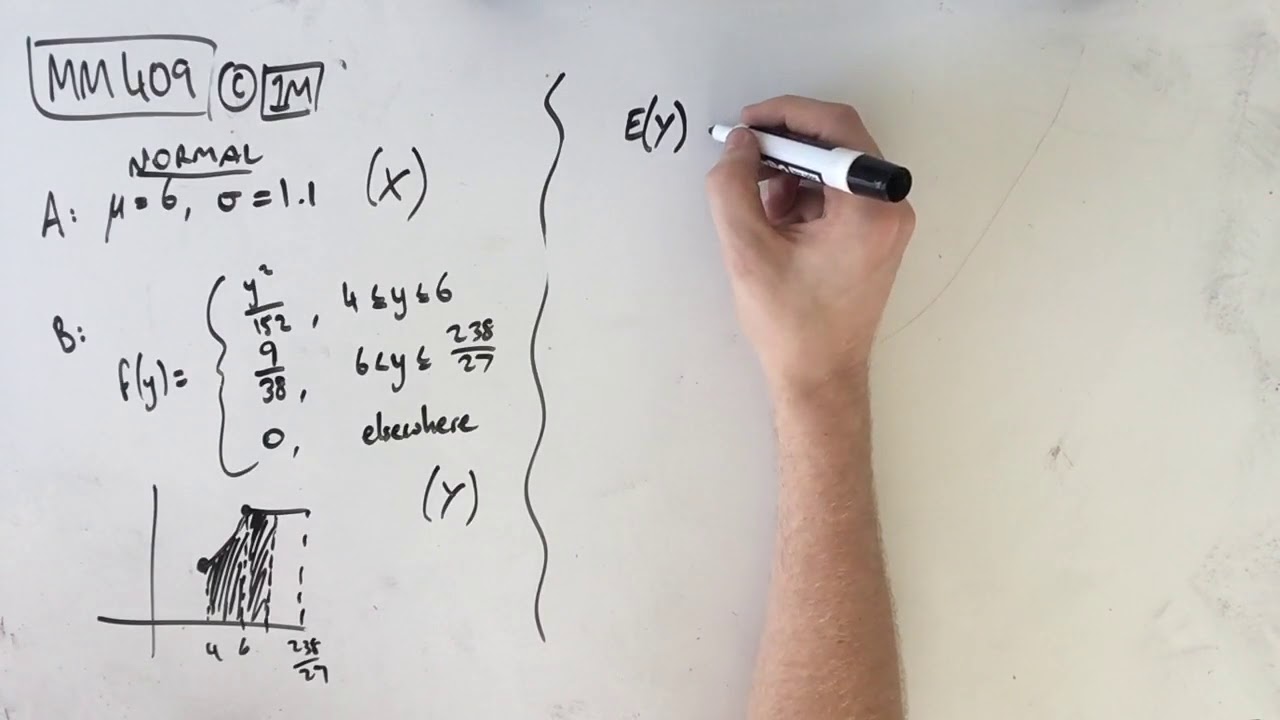 MM409 © 1M
NORMAL
A: μ=6, σ=1.1 (X)
B:
f(y)= { y²/152, 4≤y≤6
9/38, 6<y≤ 238/27
0, elsewhere
(Y)
4 6 238/27
E(Y)